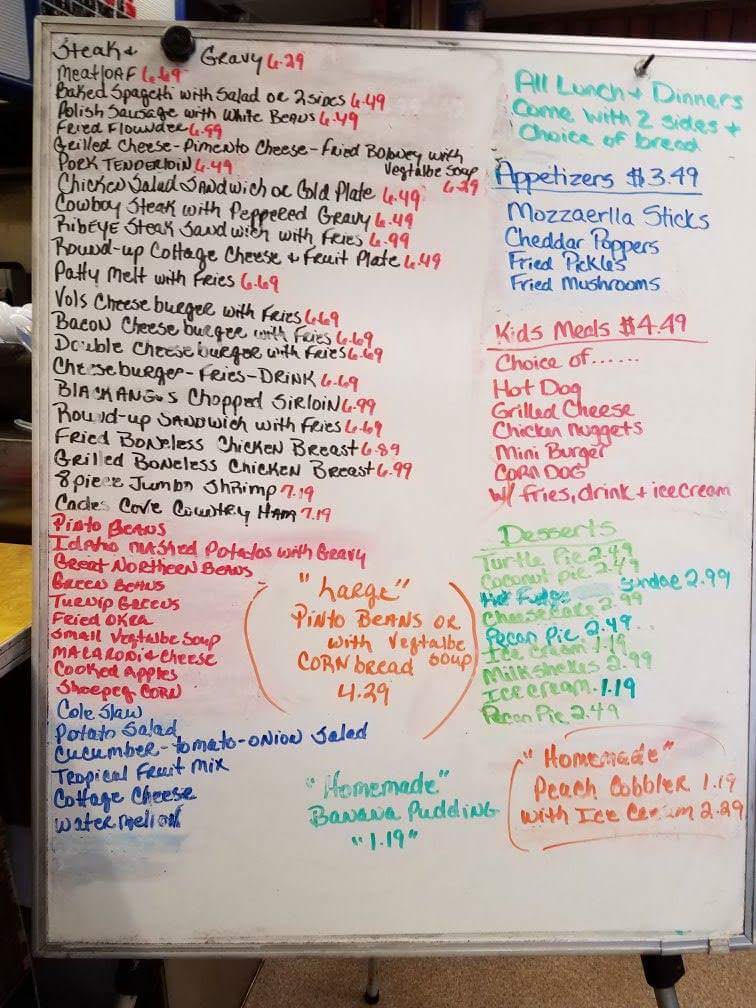 Steak + Gravy 6.29
Meatloaf 6.69
Baked Spagetti with Salad or 2 sides 6.49
Polish Sausage with White Beans 6.49
Fried Flounder 6.99
Grilled Cheese-Pimento Cheese-Fried Bolowey with Vegtalbe Soup 6.29
Pork Tenderloin 6.49
Chicken Salad Sandwich or Cold Plate 6.49
Cowboy Steak with Peppered Gravy 6.49
Ribeye Steak Sandwich with Fries 6.99
Round-up Cottage Cheese + Fruit Plate 6.49
Patty Melt with Fries 6.69
Vols Cheeseburger with Fries 6.69
Bacon Cheeseburger with Fries 6.69
Double Cheeseburger with Fries 6.69
Cheeseburger-Fries-Drink 6.69
Black Angus Chopped Sirloin 6.99
Round-up Sandwich with Fries 6.69
Fried Boneless Chicken Breast 6.89
Grilled Boneless Chicken Breast 6.99
8 piece Jumbo Shrimp 7.19
Cades Cove Country Ham 7.19
Pinto Beans
Idaho mashed Potatos with Gravy
Great Northern Beans
Green Beans
Turnip Greens
Fried Okra
Small Vegtalbe Soup
Macaroni + Cheese
Cooked Apples
Shoepeg Corn
Cole Slaw
Potato Salad
Cucumber-tomato-onion Salad
Tropical Fruit Mix
Cottage Cheese
Watermelion
All Lunch + Dinners
Come with 2 sides +
Choice of bread
Appetizers $3.49
Mozzaerlla Sticks
Cheddar Poppers
Fried Pickles
Fried Mushrooms
Kids Meals $4.49
Choice of......
Hot Dog
Grilled Cheese
Chicken Nuggets
Mini Burger
Corn Dog
w/ fries, drink + ice cream
Desserts
Turtle Pie 2.49
Coconut pie 2.49
Hot Fudge Sundae 2.99
Cheesecake 2.99
Pecan Pie 2.49
Ice cream 1.19
Milkshakes 2.99
Ice cream 1.19
Pecan Pie 2.49
"Large"
Pinto Beans or
with Vegtalbe
Cornbread Soup
4.29
"Homemade"
Banana Pudding
"1.19"
"Homemade"
Peach Cobbler 1.19
with Ice Cream 2.29